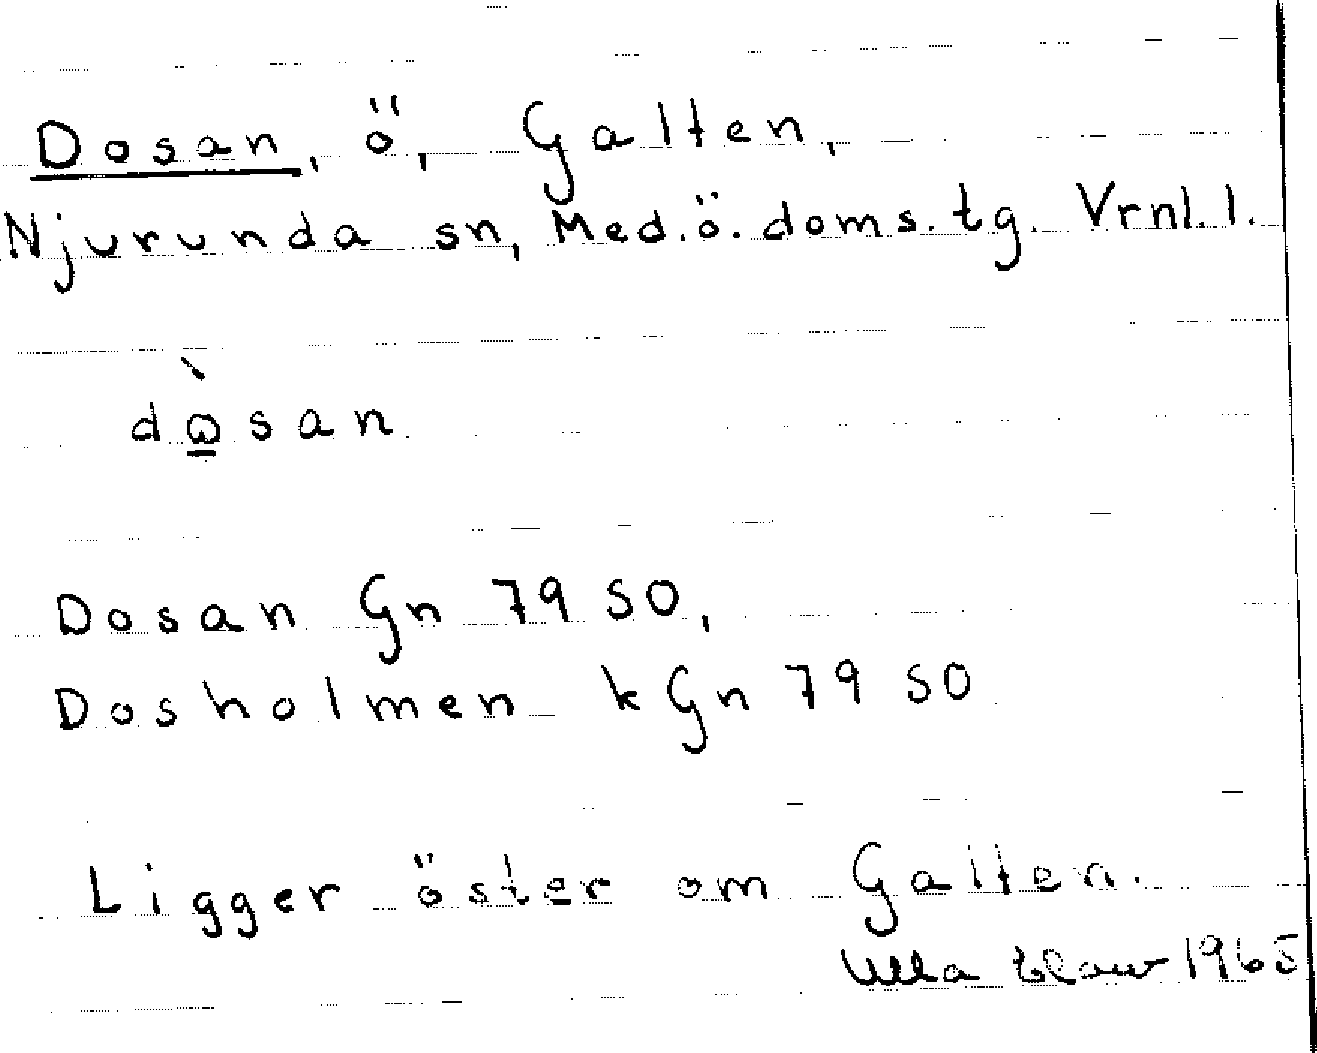 Dosan, ö, Galten,
Njurunda sn, Med.ö.doms.tg. Vrnl.l.
dὼ̲san
Dosan Gn 79 SO,
Dosholmen kGn 79 SO
Ligger öster om Galten.
Ulla 1965